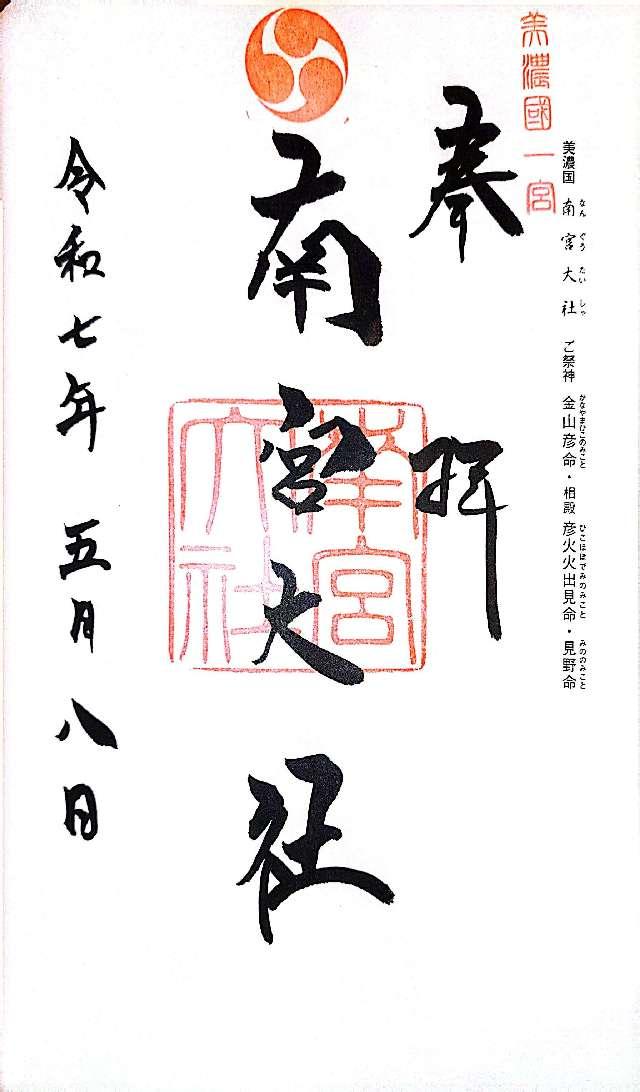 美濃國一宮
美濃国 南宮大社 ご祭神 金山彦命・相殿 彦火火出見命・見野命
なんぐうたいしゃ かなやまひこのみこと ひこほほでみのみこと みののみこと
奉拝
南宮大社
南宮大社
令和七年 五月八日